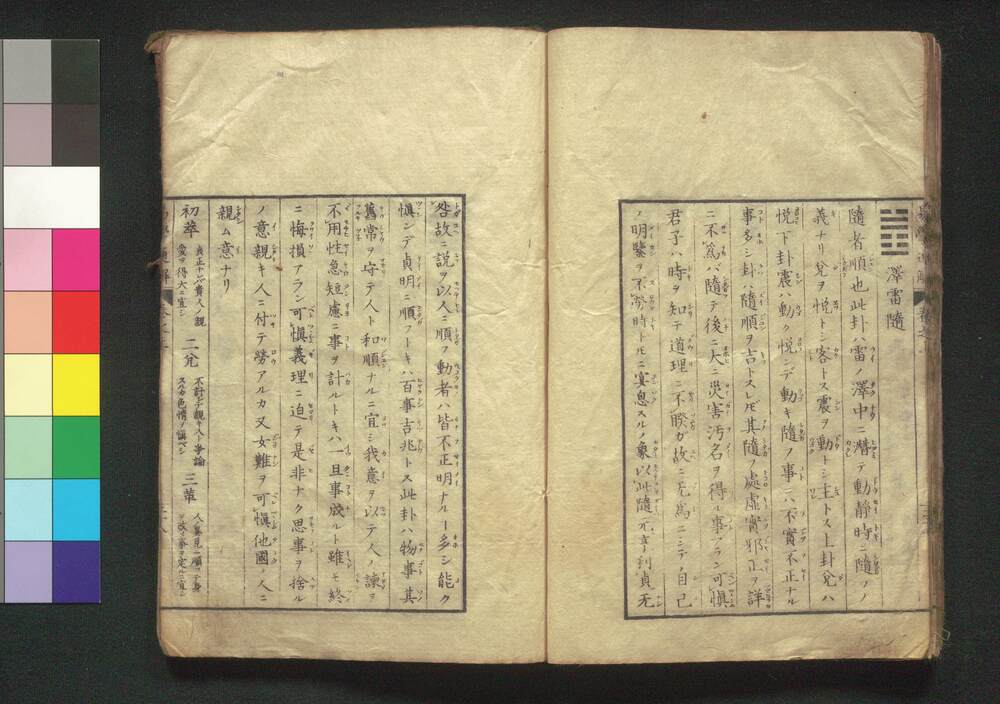 澤雷隨
隨者順也此卦ハ雷ノ澤中ニ潛テ動靜時ニ隨ノノ
義ナリ兌ヲ悦トシ客トス震ヲ動トシ主トス上卦兌ハ
悦下卦震ハ動ク悦ンデ動キ隨ノ事ニ不實不正ナル
事多シ卦ハ隨順ヲ吉トスレ𪜈其隨ノ處虚實邪正ヲ詳
ニ不爲バ隨テ後ニ大ニ災害汚名ヲ得ル事アラン可愼
君子ハ時ヲ知テ道理ニ不睽ガ故ニ无爲ニシテノ自己
ノ明鑒ヲ不勞時トモニ宴息スルノ象以此隨元亨利貞无
咎故ニ説ヲ以人ニ順フ動者ハ皆不正明ナルー多シ能ク
愼ンデ貞明ニ順フトキハ百事吉兆トス此卦ハ物事其
舊常ヲ守テ人ト和順ナルニ宜シ我意ヲ以テ人ノ諫ヲ
不用性急短慮ニ事ヲ計ルトキハ一旦事成ルト雖モ終
ニ悔損アラン可愼義理ニ迫テ是非ナク思事ヲ捨ル
ノ意親キ人ニ付テ勞アルカ又女難ヲ可愼他國ノ人ニ
親ム意ナリ
初萃
二兌
三革